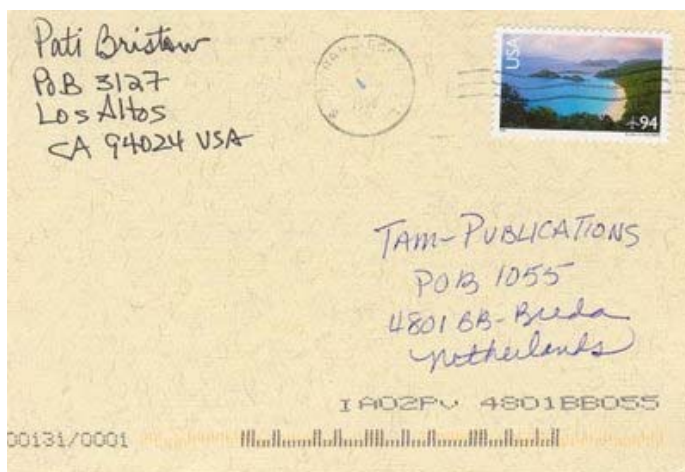 Pati Bristow
PoB 3127
Los Altos
CA 94024 USA
USA
94
TAM-PUBLICATIONS
POB 1055
4801 BB-Breda
Netherlands
IA02Pv 4801BB055
00131/0001